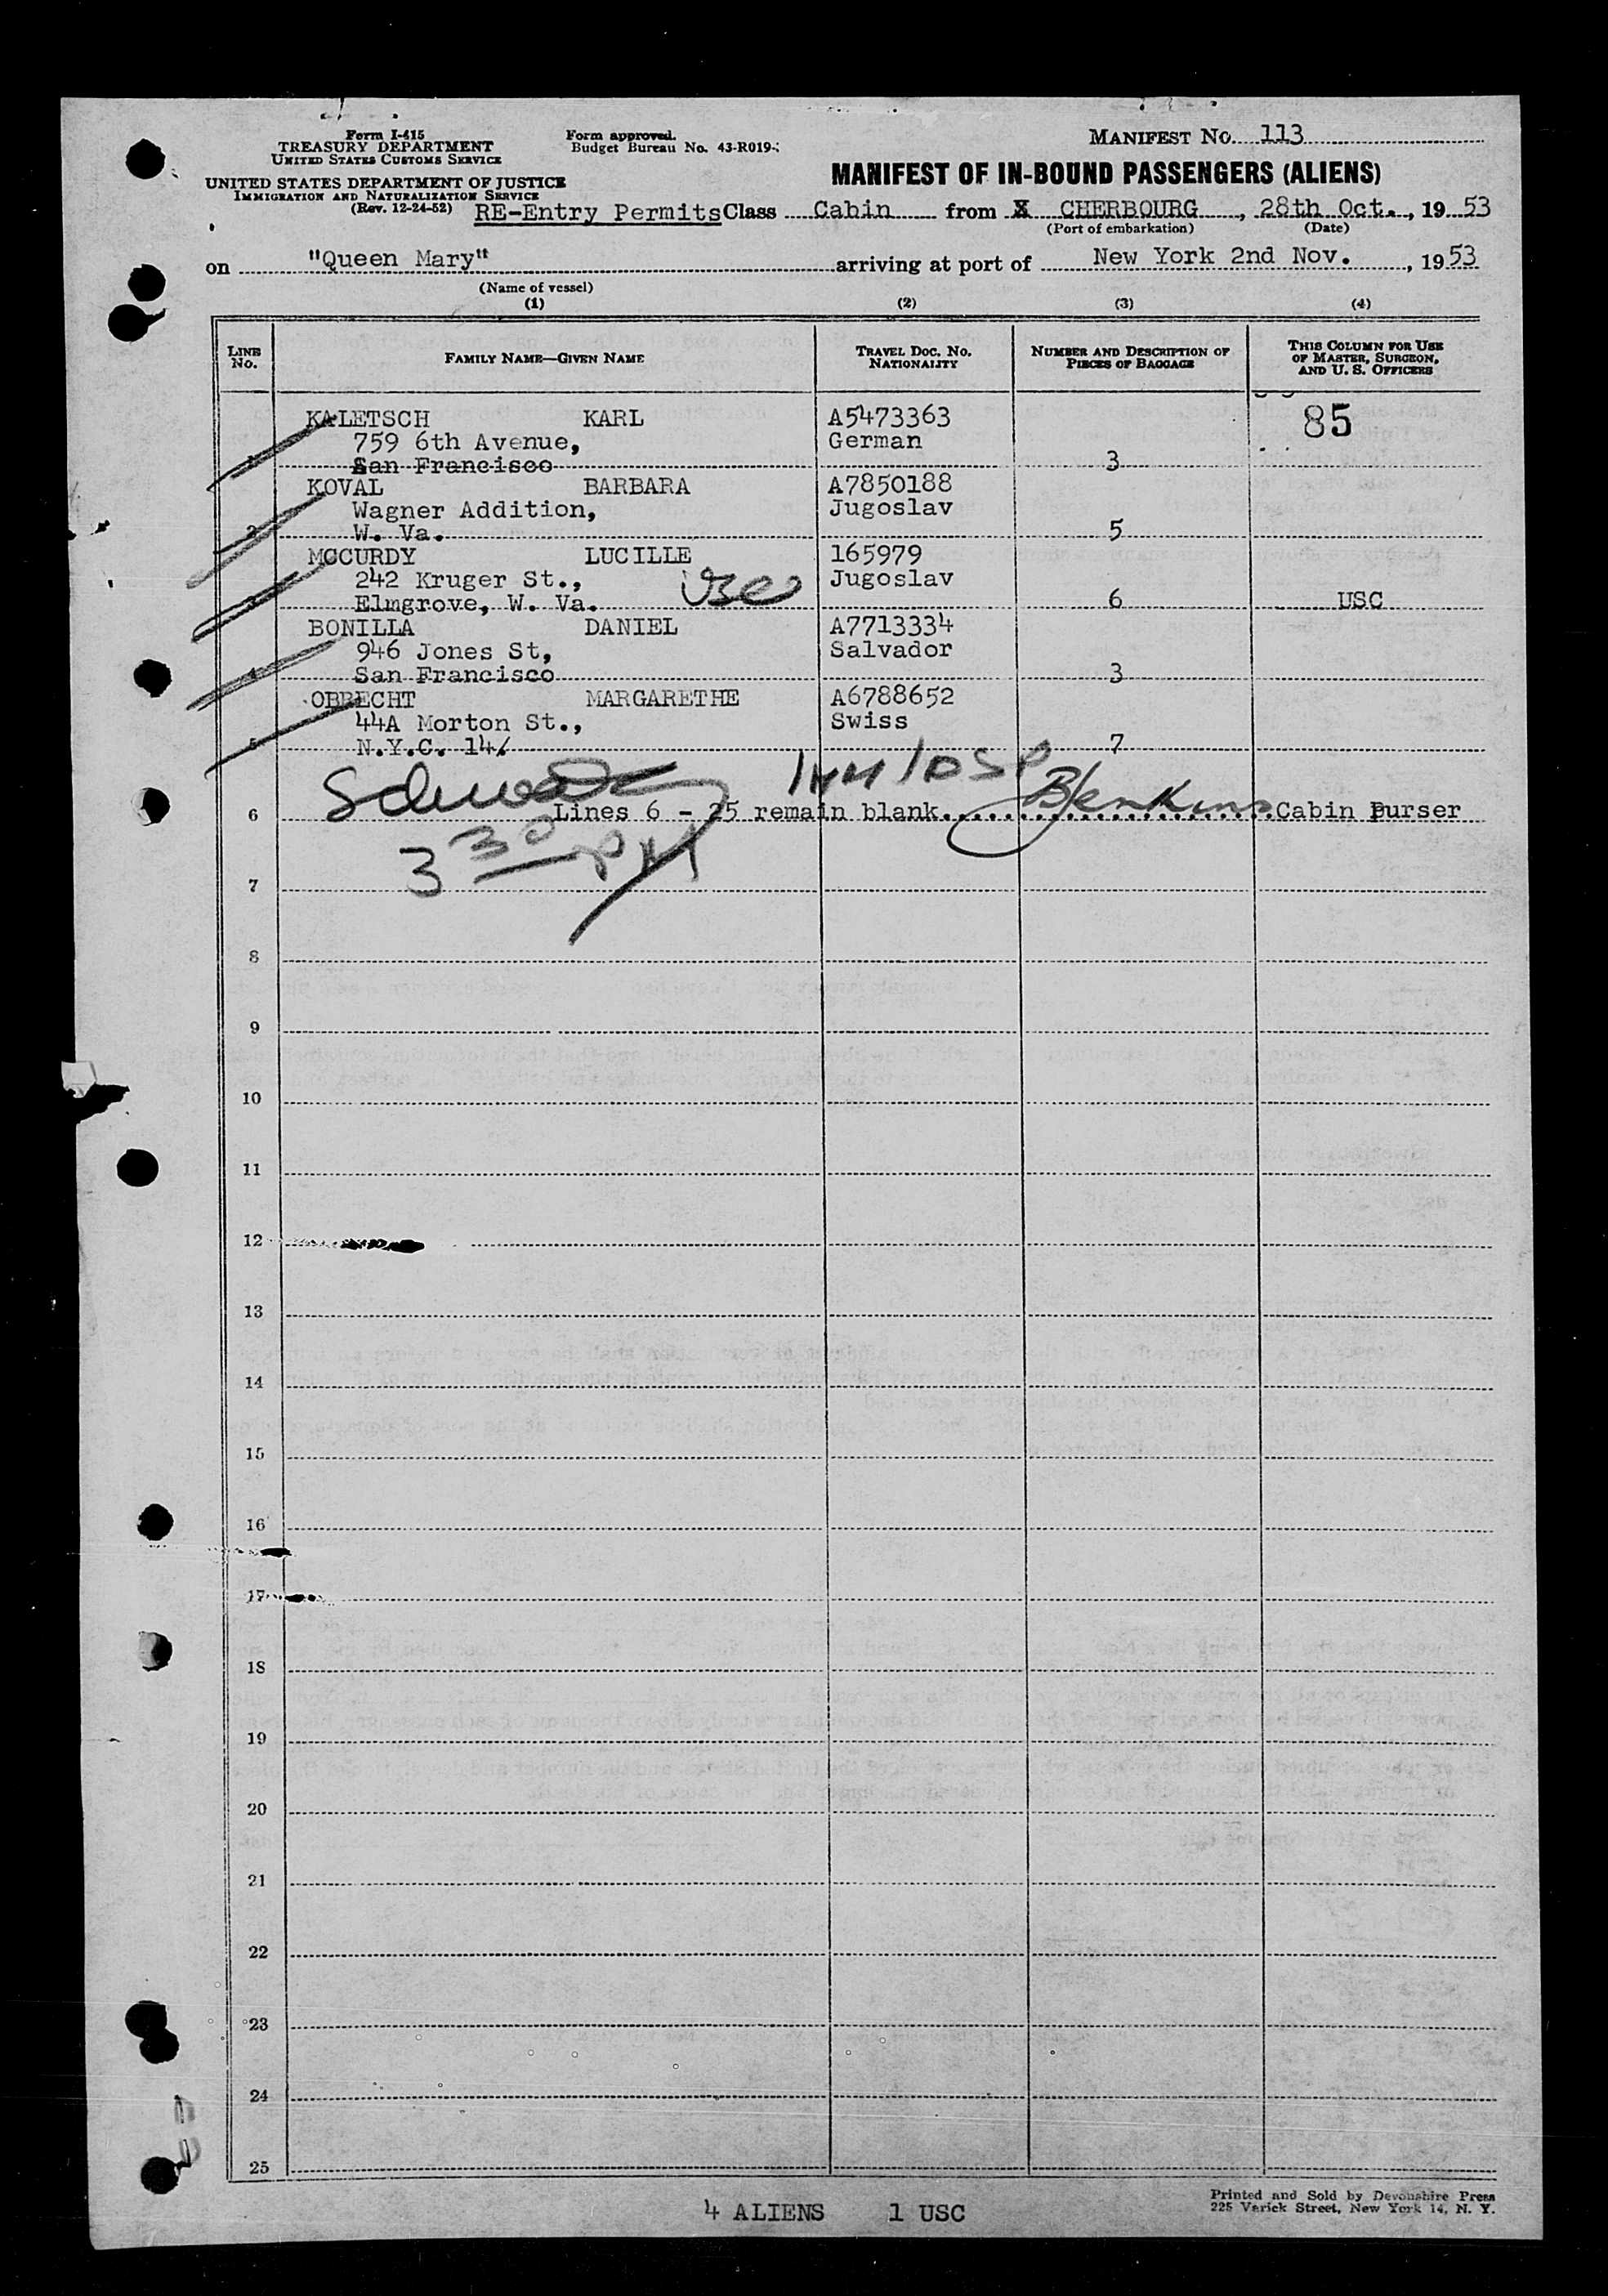 Form I-415
TREASURY DEPARTMENT
UNITED STATES CUSTOMS SERVICE
Form approved.
Budget Bureau No. 43-R019-
MANIFEST NO. 113
UNITED STATES DEPARTMENT OF JUSTICE
IMMIGRATION AND NATURALIZATION SERVICE
(Rev. 12-24-52)
MANIFEST OF IN-BOUND PASSENGERS (ALIENS)
RE-Entry Permits Class Cabin from X CHERBOURG, 28th Oct., 19 53
(Port of embarkation) (Date)
on "Queen Mary" arriving at port of New York 2nd Nov., 19 53
(Name of vessel)
(1) (2) (3) (4)
LINE NO. FAMILY NAME—GIVEN NAME TRAVEL DOC. NO. NATIONALITY NUMBER AND DESCRIPTION OF PIECES OF BAGGAGE THIS COLUMN FOR USE OF MASTER, SURGEON, AND U. S. OFFICERS
KALETSCH KARL A5473363 85
759 6th Avenue, German
1 San Francisco 3
KOVAL BARBARA A7850188
Wagner Addition, Jugoslav
2 W. Va. 5
MCCURDY LUCILLE 165979
242 Kruger St., Jugoslav
3 Elmgrove, W. Va. USC 6 USC
BONILLA DANIEL A7713334
946 Jones St, Salvador
4 San Francisco 3
OBRECHT MARGARETHE A6788652
44A Morton St., Swiss
5 N.Y.C. 14 7
6 Lines 6 - 25 remain blank. BJenkins Cabin purser
3 30 PM
7
8
9
10
11
12
13
14
15
16
17
18
19
20
21
22
23
24
25
4 ALIENS 1 USC
Printed and Sold by Devonshire Press
225 Varick Street, New York 14, N. Y.